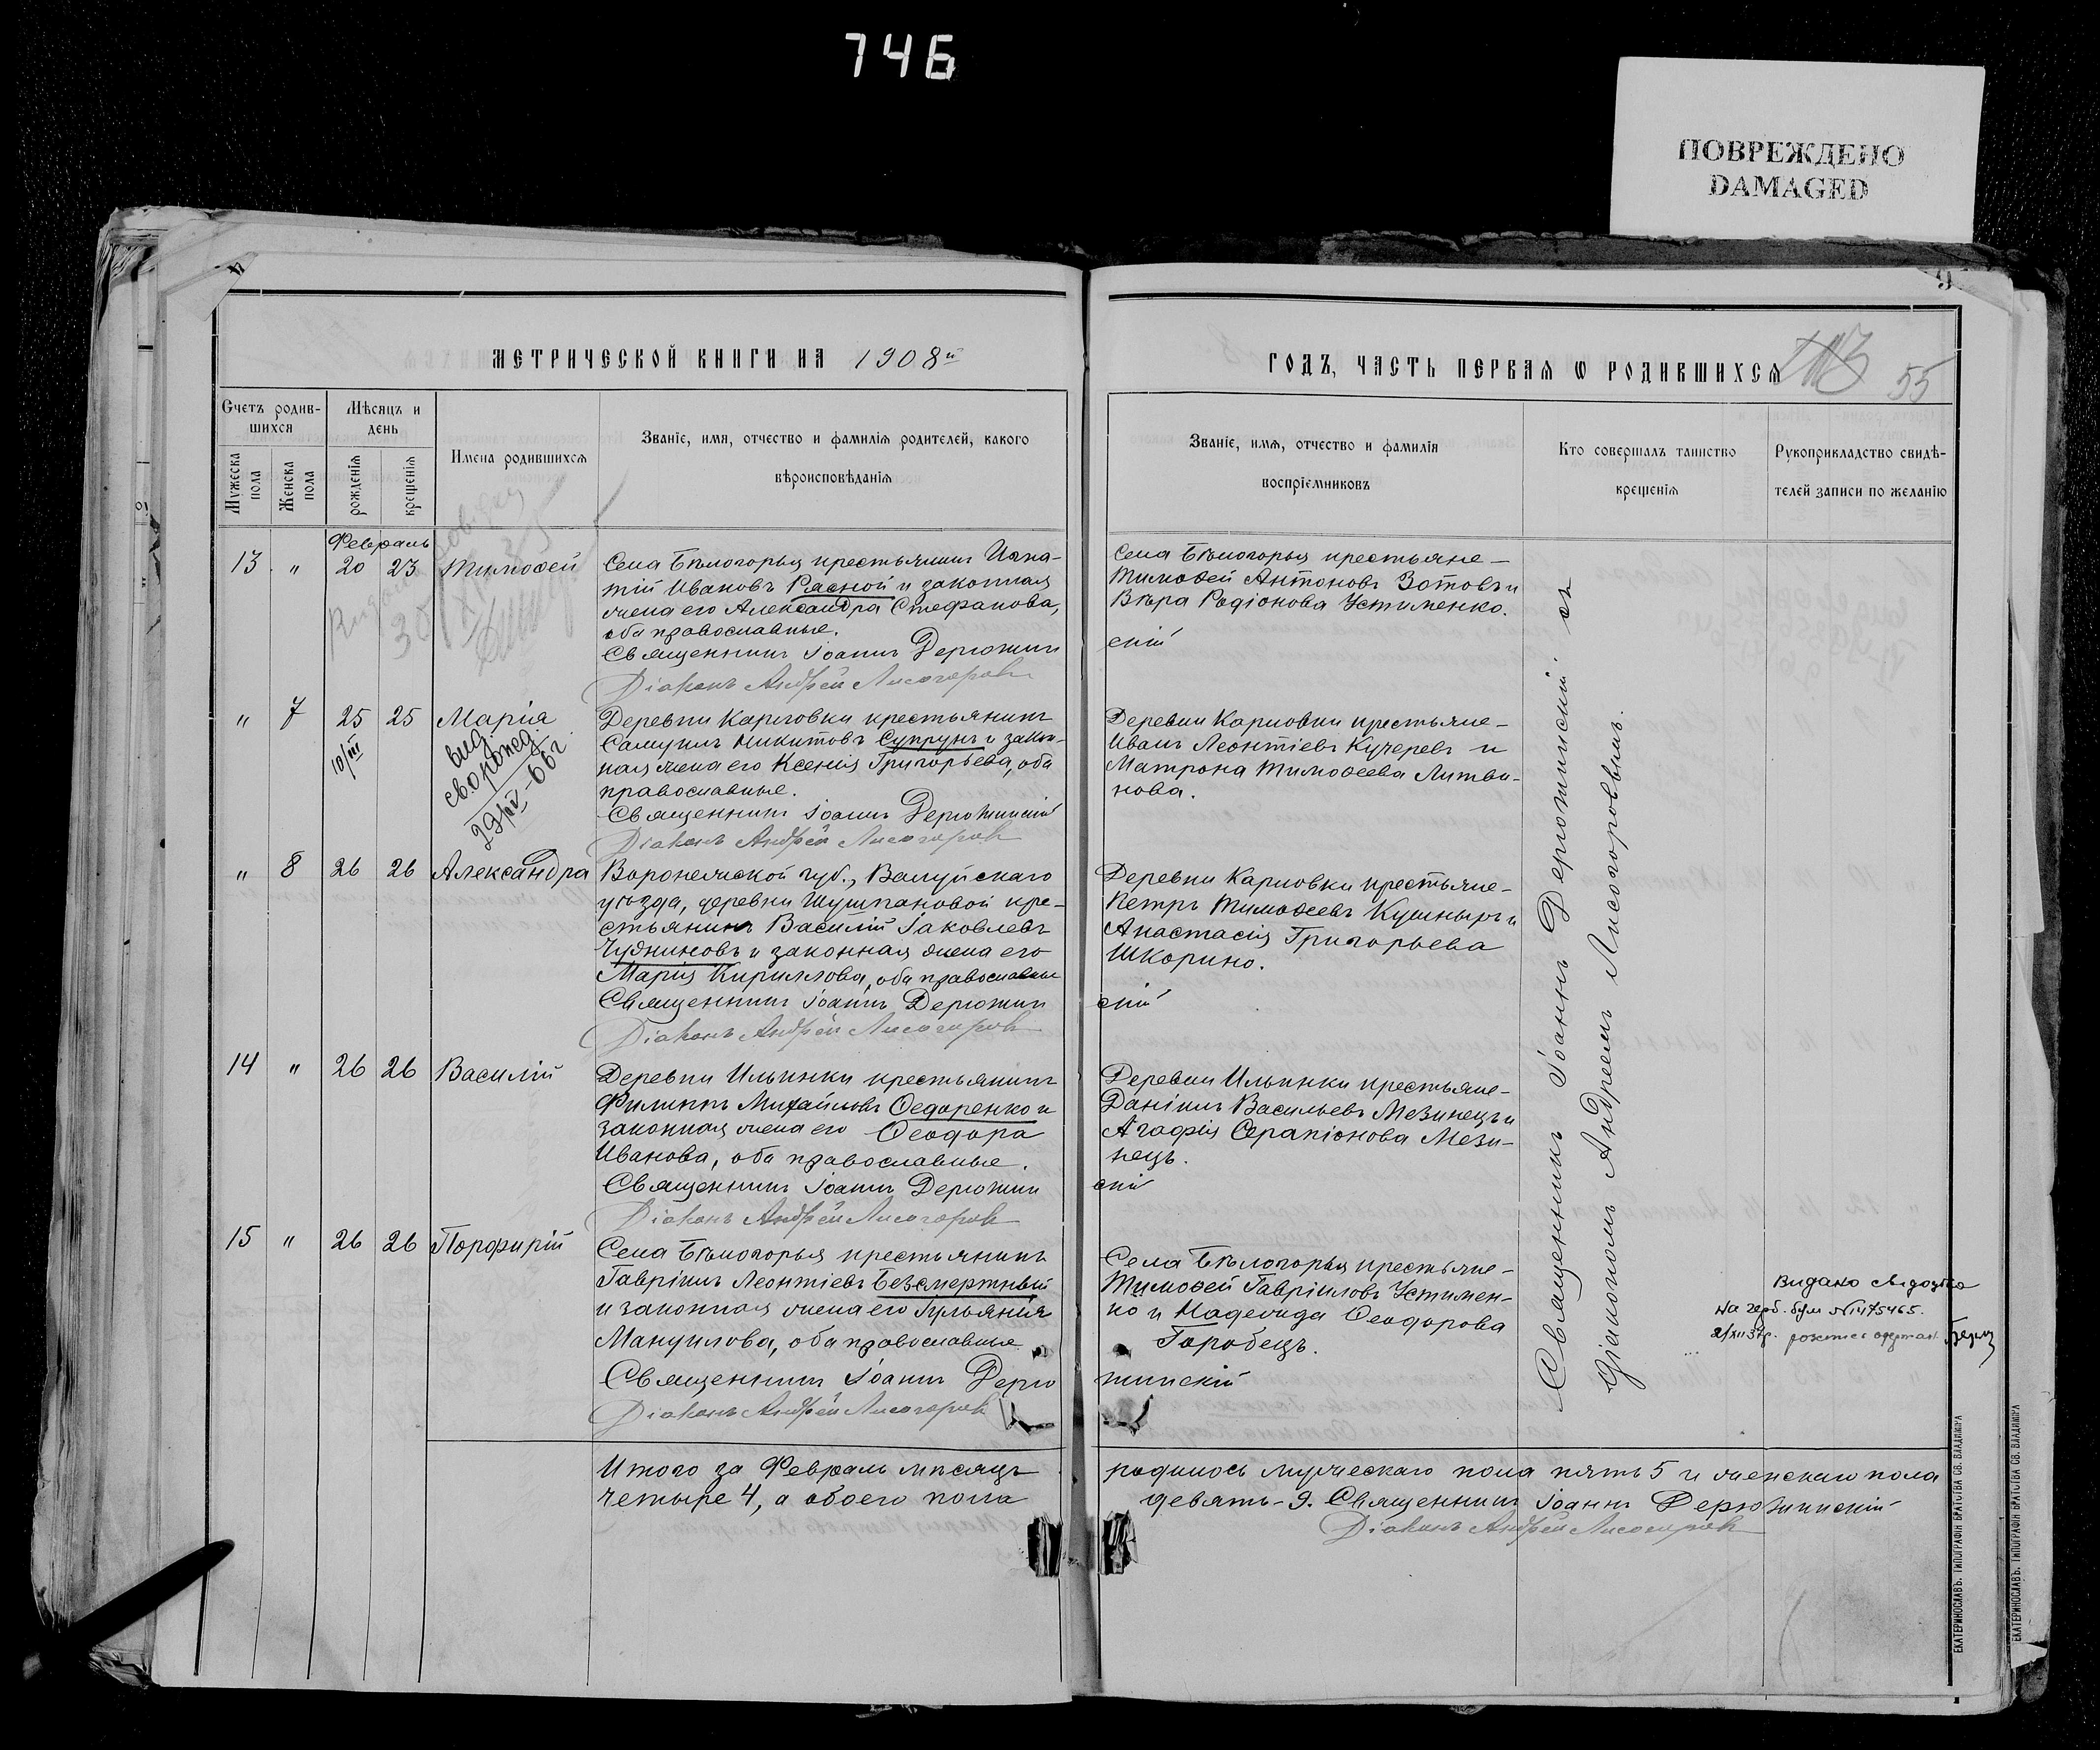 746
ПОВРЕЖДЕНО
DAMAGED
9
МЕТРИЧЕСКОЙ КНИГИ НА 1908й
ГОДЪ, ЧАСТЬ ПЕРВАЯ Ѡ РОДИВШИХСЯ
55
Счетъ родив-
шихся
Мѣсяцъ и
день
Мужеска
пола
Женска
пола
рожденія
крещенія
Имена родившихся
Званіе, имя, отчество и фамилія родителей, какого
вѣроисповѣданія
Званіе, имя, отчество и фамилія
воспріемниковъ
Кто совершалъ таинство
крещенія
Рукоприкладство свидѣ-
телей записи по желанію
Февраль
13 " 20 23 Тимоѳей
Села Бѣлогорья крестьянинъ Игна-
тій Ивановъ Расной и законная
жена его Александра Стефанова,
оба православные.
Священникъ Іоаннъ Дерюжин
Діаконъ Андрей Лисогоровъ
Села Бѣлогорья крестьяне –
Тимоѳей Антоновъ Зотовъ и
Вѣра Родіонова Устименко.
скій
" 7 25 25 Марія
10/III
вид.
св. о рожд.
29/IV-66г
Деревни Карловки крестьянинъ
Самуилъ Никитовъ Супрунъ и закон-
ная жена его Ксенія Григорьева, оба
православные.
Священникъ Іоаннъ Дерюжинскій
Діаконъ Андрей Лисогоровъ
Деревни Карловки крестьяне –
Иванъ Леонтіевъ Кучеревъ и
Матрона Тимоѳеева Литви-
нова.
" 8 26 26 Александра
Воронежской губ., Валуйскаго
уѣзда, деревни Шушпановой кре-
стьянинъ Василій Іаковлевъ
Чудниковъ и законная жена его
Марія Кириллова, оба православные
Священникъ Іоаннъ Дерюжин
Діаконъ Андрей Лисогоровъ
Деревни Карловки крестьяне –
Петръ Тимоѳеевъ Кушныръ и
Анастасія Григорьева
Шкорино.
скій
14 " 26 26 Василій
Деревни Ильинки крестьянинъ
Филиппъ Михайловъ Ѳедоренко и
законная жена его Ѳеодора
Иванова, оба православные.
Священникъ Іоаннъ Дерюжин
Діаконъ Андрей Лисогоровъ
Деревни Ильинки крестьяне –
Даніилъ Васильевъ Мезинецъ и
Агафія Серапіонова Мези-
нецъ.
скій
15 " 26 26 Порфирій
Села Бѣлогорья крестьянинъ
Гавріилъ Леонтіевъ Безсмертный
и законная жена его Іульянія
Мануилова, оба православные
Священникъ Іоаннъ Дерю
Діаконъ Андрей Лисогоровъ
Села Бѣлогорья крестьяне –
Тимоѳей Гавріиловъ Устимен-
ко и Надежда Ѳеодорова
Горобецъ.
жинскій
Священникъ Іоаннъ Дерюжинскій съ
діакономъ Андреемъ Лисогоровымъ.
Видано
на герб. бум №1475465.
Итого за Февраль мѣсяцъ
четыре 4, а обоего пола
родилось мужескаго пола пять 5 и женскаго пола
девять – 9. Священникъ Іоаннъ Дерюжинскій
Діаконъ Андрей Лисогоровъ
ЕКАТЕРИНОСЛАВЪ. ТИПОГРАФІЯ БРАТСТВА СВ. ВЛАДИМІРА
ЕКАТЕРИНОСЛАВЪ. ТИПОГРАФІЯ БРАТСТВА СВ. ВЛАДИМІРА